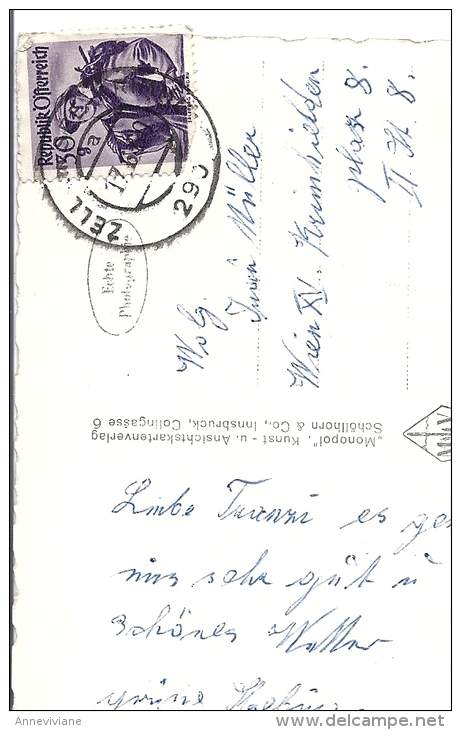 Republik Österreich
30
ZELL
17.
290
Echte
Photographie
Wolg.
Müller
Wien XV. Kriemhilden
platz 8.
II. St 8.
„Monopol“, Kunst - u. Ansichtskartenverlag
Schöllhorn & Co., Innsbruck, Colingasse 6
Liebe es ge
uns sehr gut u
schönes Wetter
grüne
Anneviviane
delcampe.net